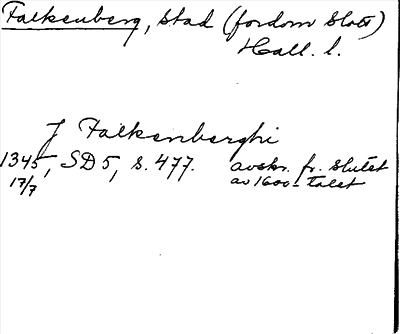 Falkenberg, stad (fordom slott)
Hall. l.
J Falkenberghi
1345, SD 5, s. 477. avskr. fr. slutet
17/7 av 1600-talet